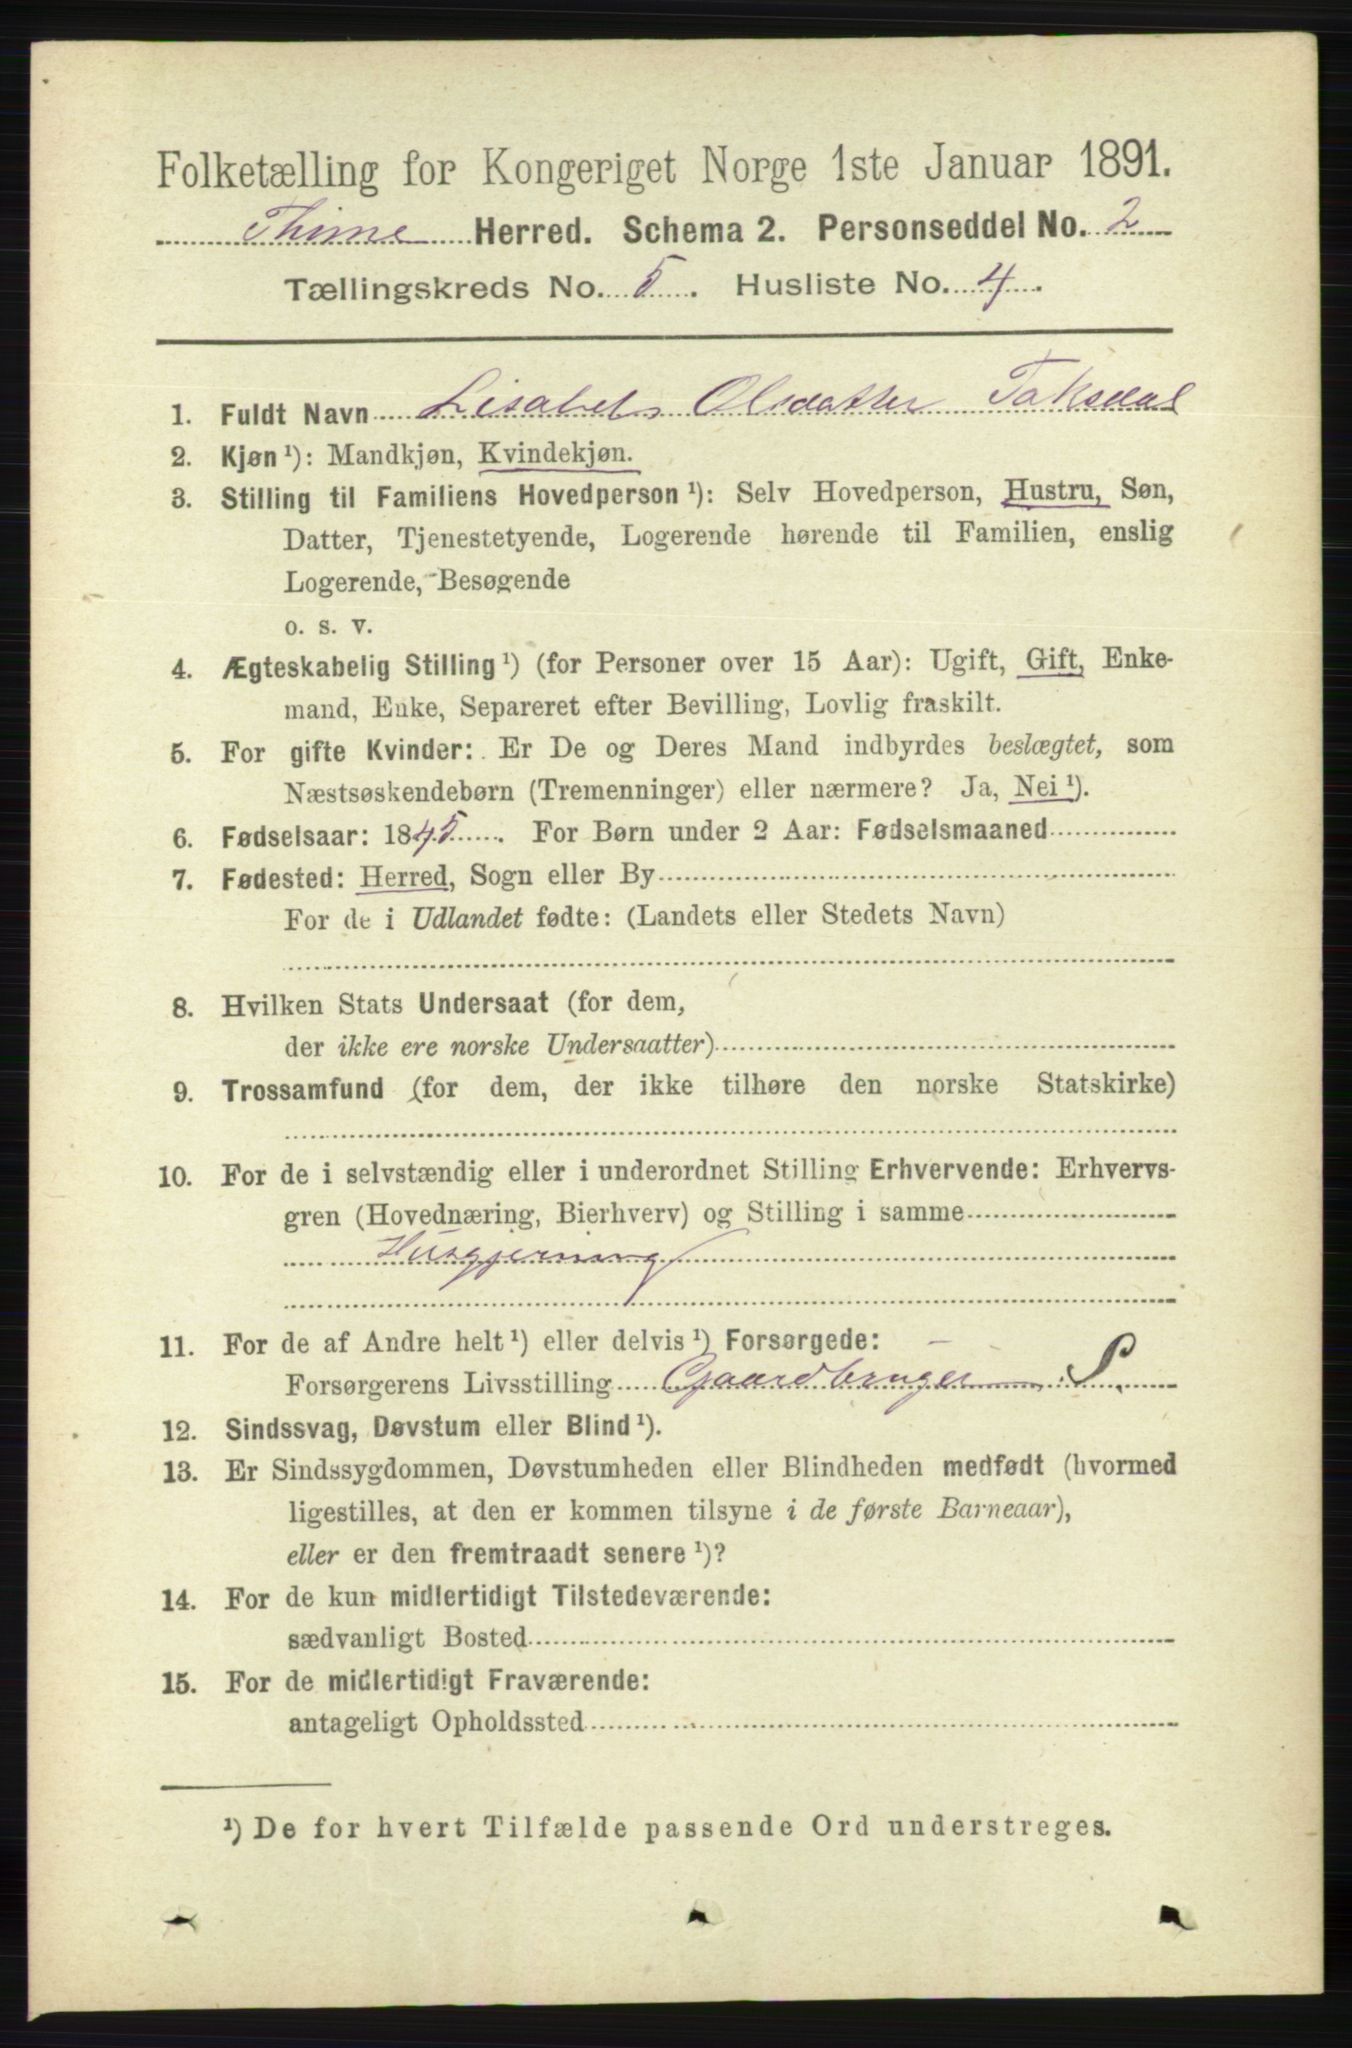 Folketælling for Kongeriget Norge 1ste Januar 1891.
Thime Herred. Schema 2. Personseddel No. 2
Tællingskreds No. 5. Husliste No. 4.
1. Fuldt Navn Lisabeth Olsdatter Taksdal
2. Kjøn ¹): Mandkjøn, Kvindekjøn.
3. Stilling til Familiens Hovedperson ¹): Selv Hovedperson, Hustru, Søn,
Datter, Tjenestetyende, Logerende hørende til Familien, enslig
Logerende, Besøgende
o. s. v.
4. Ægteskabelig Stilling ¹) (for Personer over 15 Aar): Ugift, Gift, Enke-
mand, Enke, Separeret efter Bevilling, Lovlig fraskilt.
5. For gifte Kvinder: Er De og Deres Mand indbyrdes beslægtet, som
Næstsøskendebørn (Tremenninger) eller nærmere? Ja, Nei ¹).
6. Fødselsaar: 1845. For Børn under 2 Aar: Fødselsmaaned
7. Fødested: Herred, Sogn eller By
For de i Udlandet fødte: (Landets eller Stedets Navn)
8. Hvilken Stats Undersaat (for dem,
der ikke ere norske Undersaatter)
9. Trossamfund (for dem, der ikke tilhøre den norske Statskirke)
10. For de i selvstændig eller i underordnet Stilling Erhvervende: Erhvervs-
gren (Hovednæring, Bierhverv) og Stilling i samme
Husgjerning
11. For de af Andre helt ¹) eller delvis ¹) Forsørgede:
Forsørgerens Livsstilling Gaardbruger S.
12. Sindssvag, Døvstum eller Blind ¹).
13. Er Sindssygdommen, Døvstumheden eller Blindheden medfødt (hvormed
ligestilles, at den er kommen tilsyne i de første Barneaar),
eller er den fremtraadt senere ¹)?
14. For de kun midlertidigt Tilstedeværende:
sædvanligt Bosted
15. For de midlertidigt Fraværende:
antageligt Opholdssted
¹) De for hvert Tilfælde passende Ord understreges.